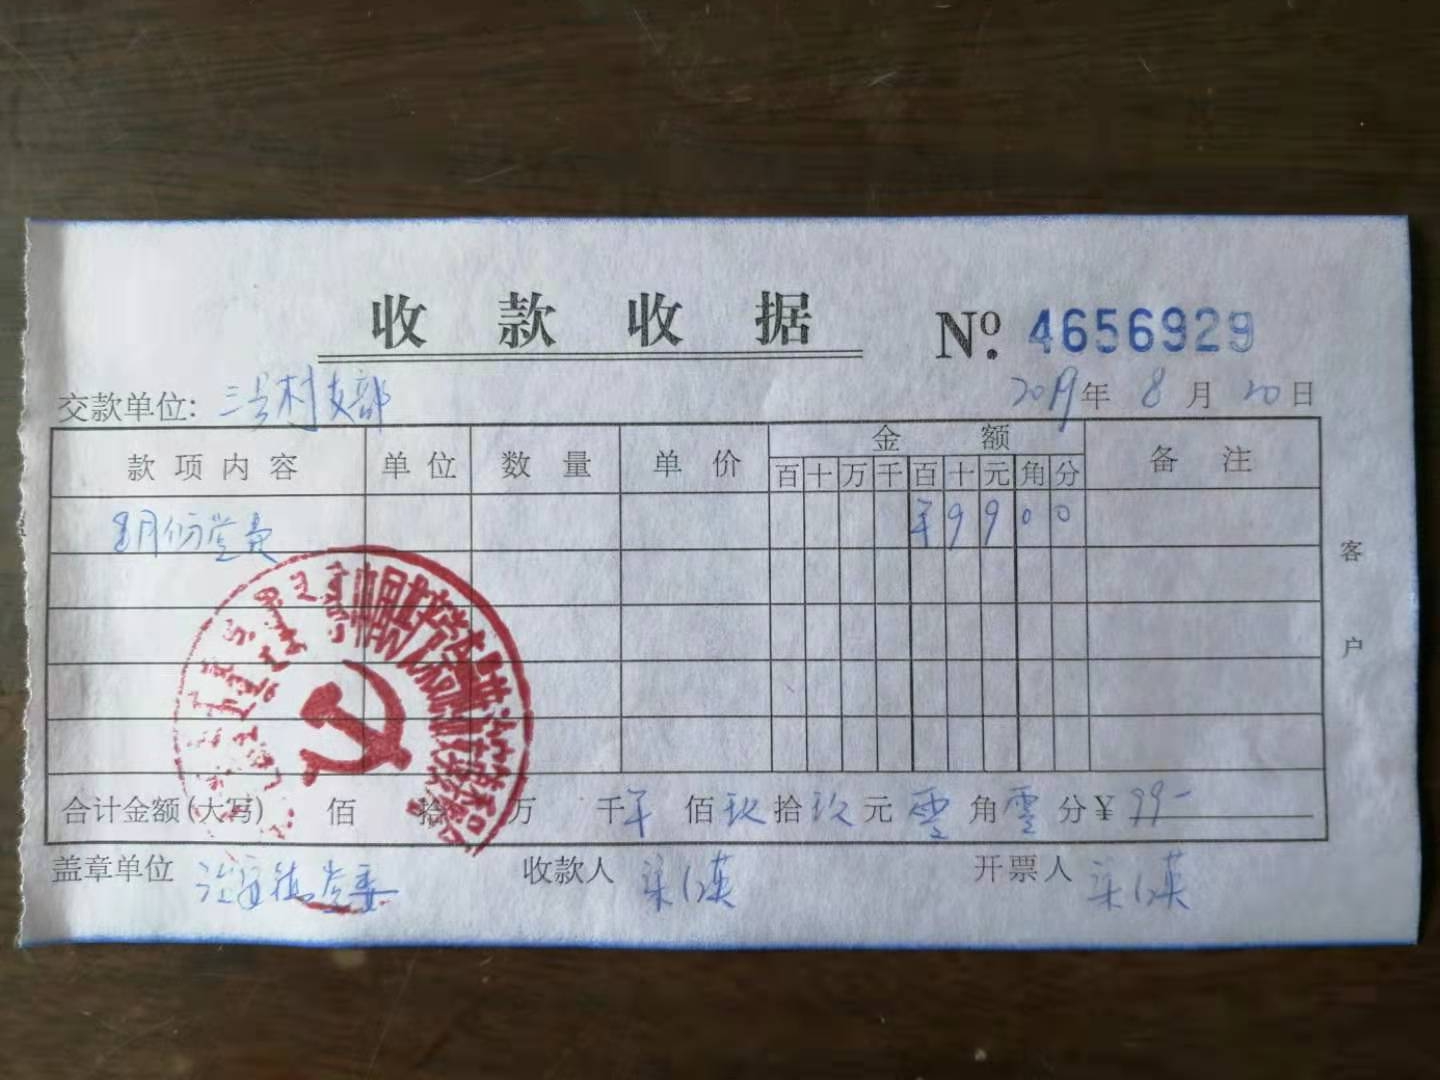 收款收据 Nº 4656929
交款单位: 三号村支部 2019年 8月 20日
款项内容 单位 数量 单价 金额 备注
百 十 万 千 百 十 元 角 分
8月份党费 ¥ 9 9 0 0
客户
合计金额(大写) 佰 拾 万 千 ¥ 佰 玖 拾 玖 元 零 角 零 分 ¥ 99-
盖章单位 党委 收款人 开票人